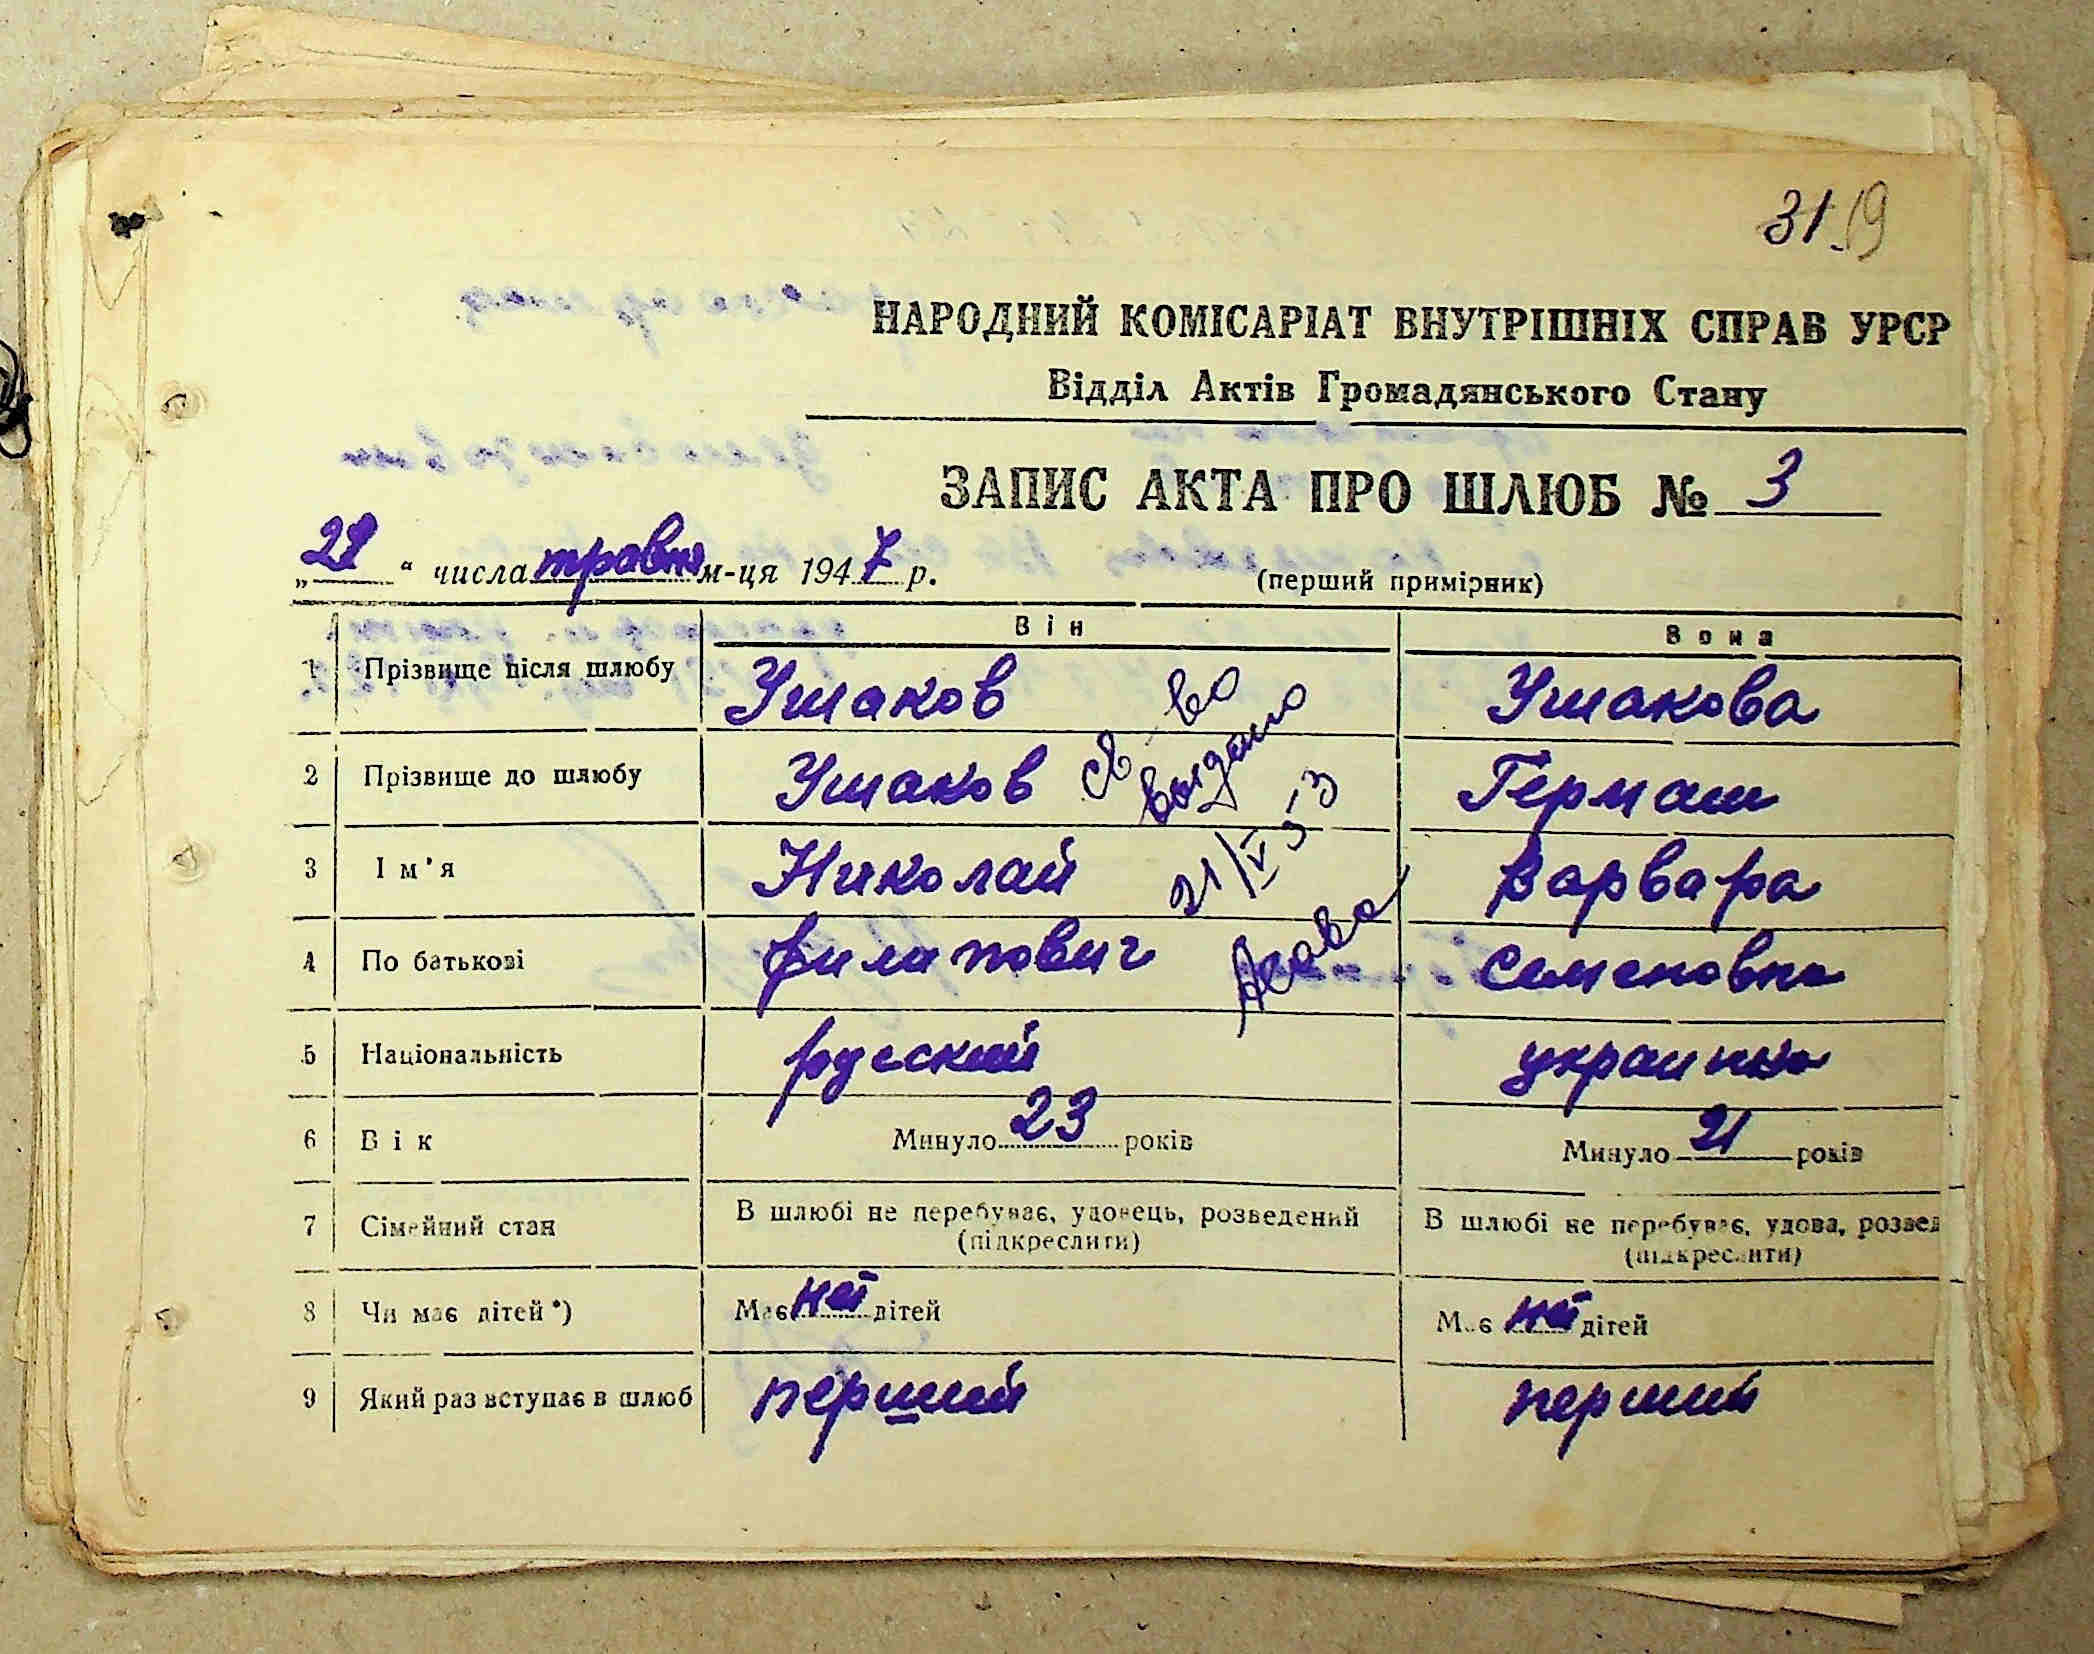 31. 19
НАРОДНИЙ КОМІСАРІАТ ВНУТРІШНІХ СПРАВ УРСР
Відділ Актів Громадянського Стану
ЗАПИС АКТА ПРО ШЛЮБ № 3
„ 29 “ числа травня м-ця 1947 р.
(перший примірник)
Він Вона
1 Прізвище після шлюбу Ушаков Ушакова
2 Прізвище до шлюбу Ушаков Гермаш
св-во
выдано
21/V 53
3 Ім'я Николай Варвара
4 По батькові Филипович Семеновна
5 Національність русский украинка
6 Вік Минуло 23 років Минуло 21 років
7 Сімейний стан В шлюбі не перебуває, удовець, розведений В шлюбі не перебуває, удова, розвед
(підкреслити) (підкреслити)
8 Чи має дітей*) Має неї дітей Має неї дітей
9 Який раз вступає в шлюб перший перший